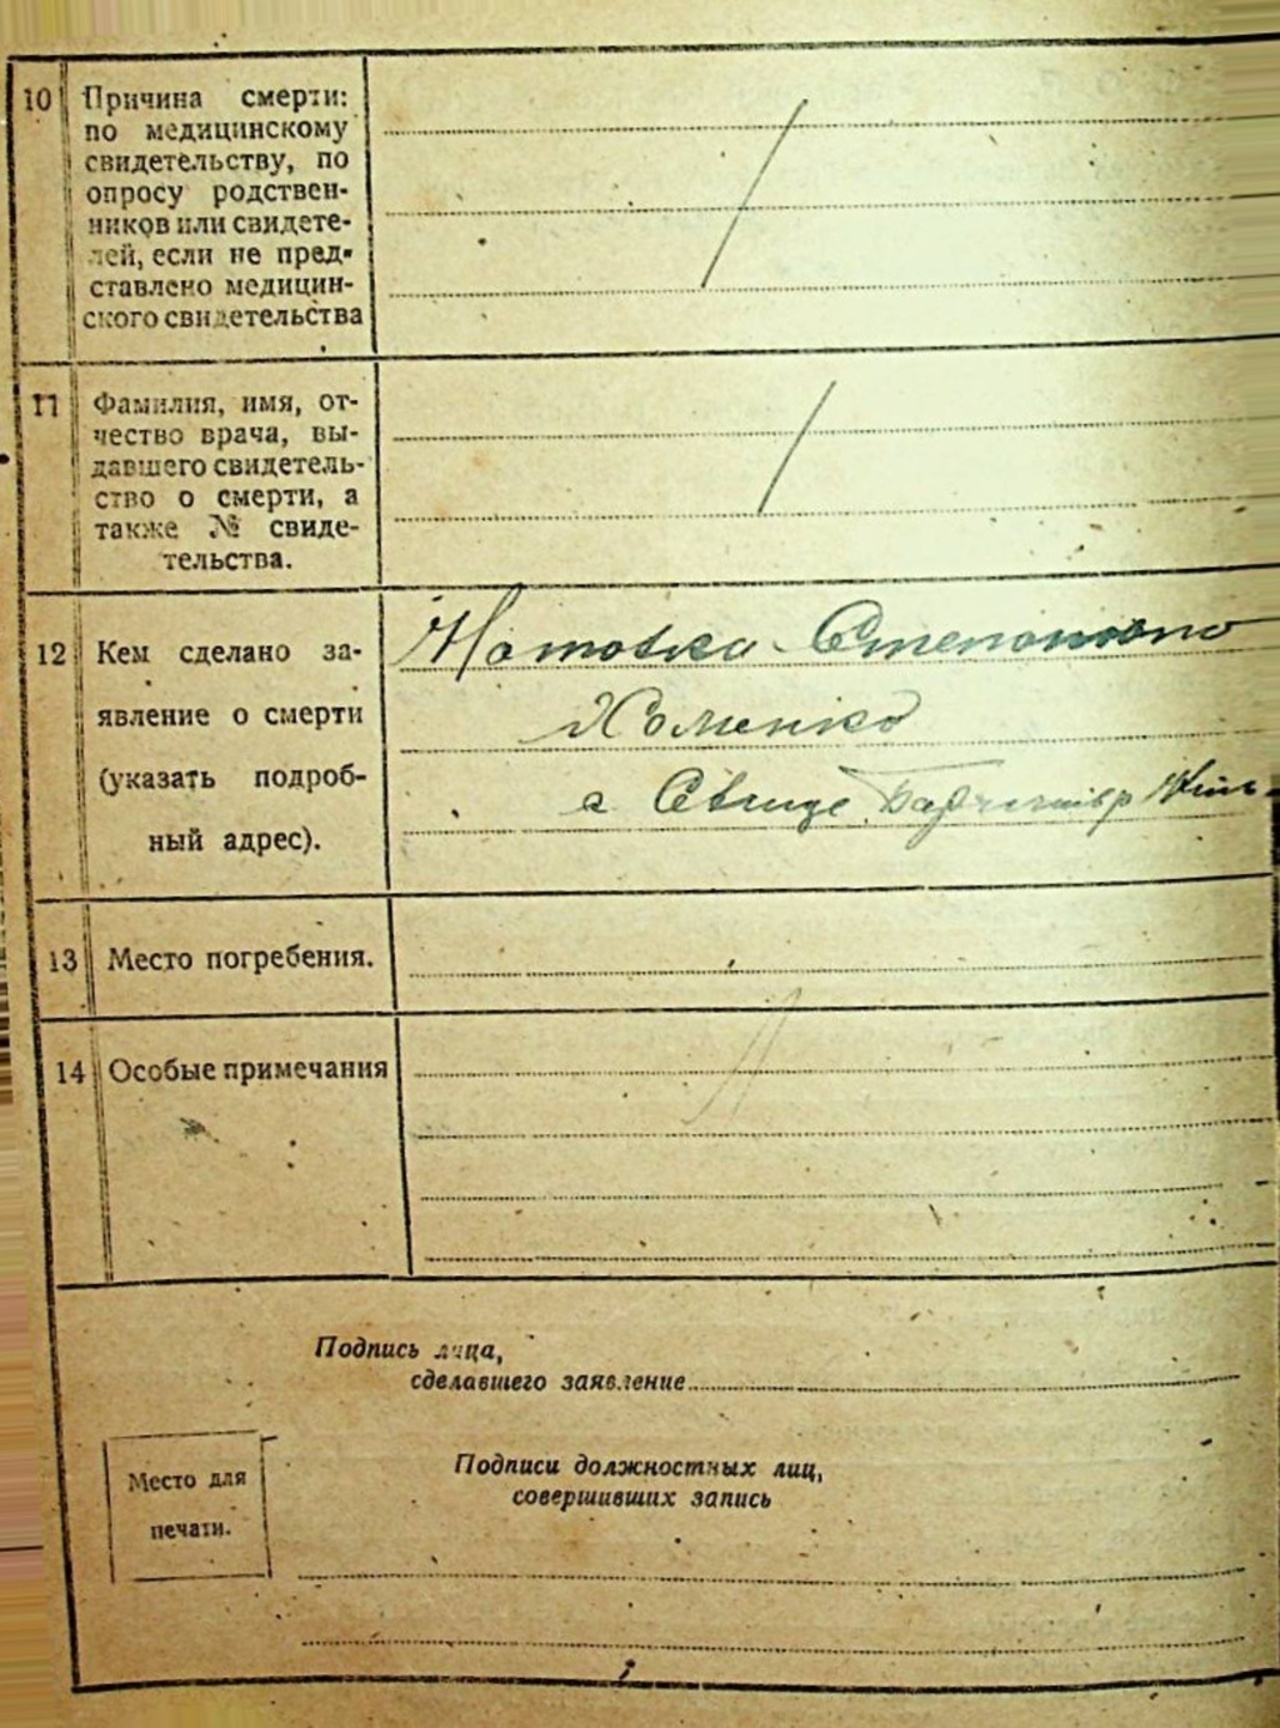 10 Причина смерти:
по медицинскому
свидетельству, по
опросу родствен-
ников или свидете-
лей, если не пред-
ставлено медицин-
ского свидетельства
11 Фамилия, имя, от-
чество врача, вы-
давшего свидетель-
ство о смерти, а
также № свиде-
тельства.
12 Кем сделано за-
явление о смерти
(указать подроб-
ный адрес).
Хоменко
13 Место погребения.
14 Особые примечания
Подпись лица,
сделавшего заявление
Место для
печати.
Подписи должностных лиц,
совершивших запись